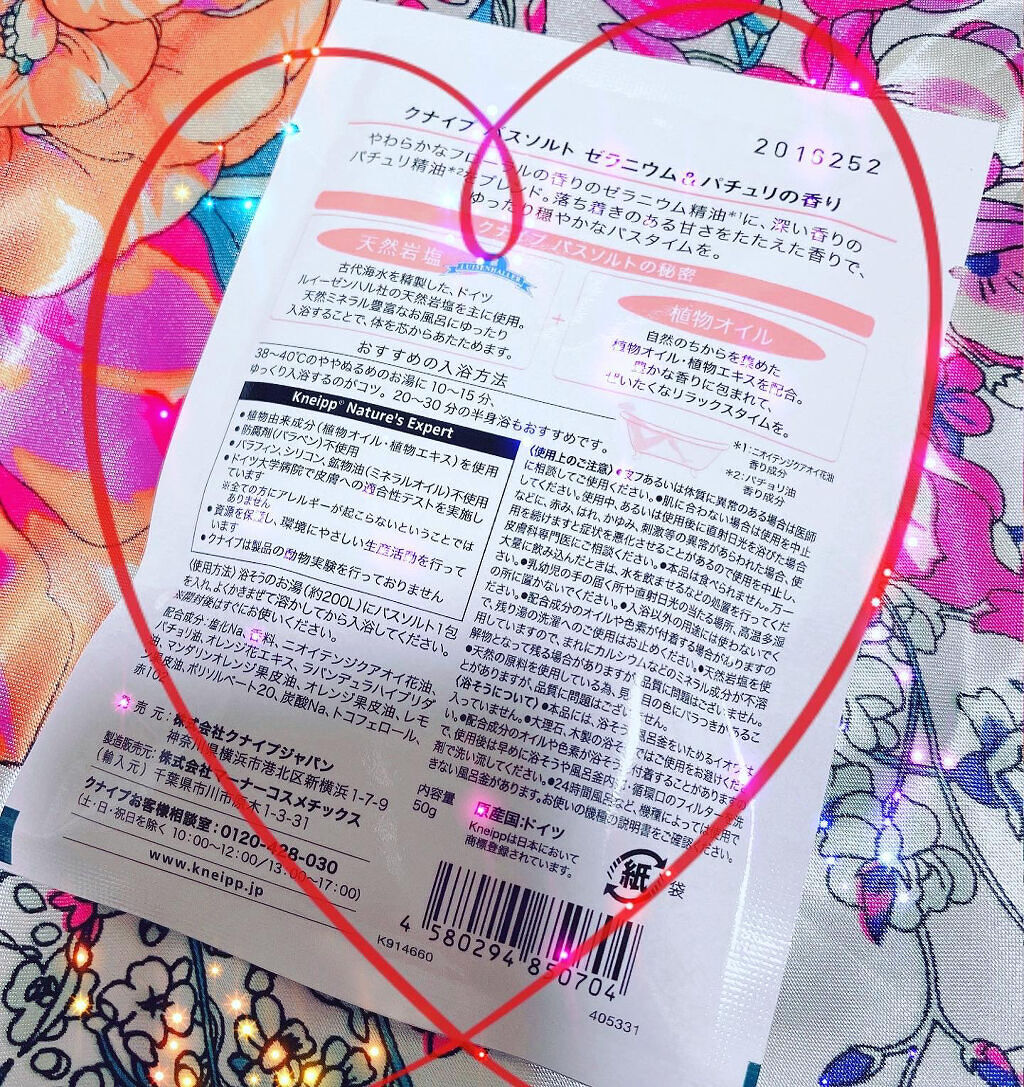 2016252
クナイプ バスソルト ゼラニウム&パチュリの香り
やわらかなフローラルの香りのゼラニウム精油*1に、深い香りの
パチュリ精油*2をブレンド。落ち着きのある甘さをたたえた香りで、
ゆったり穏やかなバスタイムを。
クナイプ バスソルトの秘密
天然岩塩
LUISENHALLER
古代海水を精製した、ドイツ
ルイーゼンハル社の天然岩塩を主に使用。
天然ミネラル豊富なお風呂にゆったり
入浴することで、体を芯からあたためます。
+
植物オイル
自然のちからを集めた
植物オイル・植物エキスを配合。
豊かな香りに包まれて、
ぜいたくなリラックスタイムを。
おすすめの入浴方法
38~40℃のややぬるめのお湯に 10~15 分、
ゆっくり入浴するのがコツ。20~30 分の半身浴もおすすめです。
*1:ニオイテンジクアオイ花油
香り成分
*2:パチョリ油
香り成分
Kneipp® Nature's Expert
●植物由来成分(植物オイル・植物エキス)を使用
●防腐剤(パラベン)不使用
●パラフィン、シリコン、鉱物油(ミネラルオイル)不使用
●ドイツ大学病院で皮膚への適合性テストを実施し
ています
※全ての方にアレルギーが起こらないということでは
ありません
●資源を保護し、環境にやさしい生産活動を行って
います
●クナイプは製品の動物実験を行っておりません
〈使用方法〉浴そうのお湯(約200L)にバスソルト1包
を入れ、よくかきまぜて溶かしてから入浴してください。
※開封後はすぐにお使いください。
配合成分:塩化Na、香料、ニオイテンジクアオイ花油、
パチョリ油、オレンジ花エキス、ラバンデュラハイブリダ
油、マンダリンオレンジ果皮油、オレンジ果皮油、レモ
ン果皮油、ポリソルベート20、炭酸Na、トコフェロール、
赤102
〈使用上のご注意〉●皮フあるいは体質に異常のある場合は医師
に相談してご使用ください。●肌に合わない場合は使用を中止
してください。使用中、あるいは使用後に直射日光を浴びた場合
などに、赤み、はれ、かゆみ、刺激等の異常があらわれた場合、使
用を続けますと症状を悪化させることがあるので使用を中止し、
皮膚科専門医にご相談ください。●本品は食べられません。万一
大量に飲み込んだときは、水を飲ませるなどの処置を行ってくだ
さい。●乳幼児の手の届く所や直射日光の当たる場所、高温多湿
の所に置かないでください。●入浴以外の用途には使わないでく
ださい。●配合成分のオイルや色素が付着する場合がありますの
で、残り湯の洗濯へのご使用はお止めください。●天然岩塩を使
用していますので、まれにカルシウムなどのミネラル成分が不溶
解物となって残る場合がありますが、品質に問題はございません。
●天然の原料を使用している為、見た目の色にバラつきがあるこ
とがありますが、品質に問題はございません。
〈浴そうについて〉●本品には、浴そう・風呂釜をいためるイオウは
入っていません。●大理石、木製の浴そうではご使用をお避けください。
●配合成分のオイルや色素が浴そうに付着することがありますの
で、使用後は早めに浴そうや風呂釜内・循環口のフィルターを洗
剤で洗い流してください。●24時間風呂など、機種によっては使用で
きない風呂釜があります。お使いの機種の説明書をご確認ください。
発売元:株式会社クナイプジャパン
神奈川県横浜市港北区新横浜 1-7-9
製造販売元:株式会社マーナーコスメチックス
(輸入元) 千葉県市川市原木1-3-31
クナイプお客様相談室:0120-428-030
(土・日・祝日を除く 10:00~12:00/13:00~17:00)
www.kneipp.jp
内容量
50g
原産国:ドイツ
Kneippは日本において
商標登録されています。
紙
袋
4 580294 850704
K914660
405331